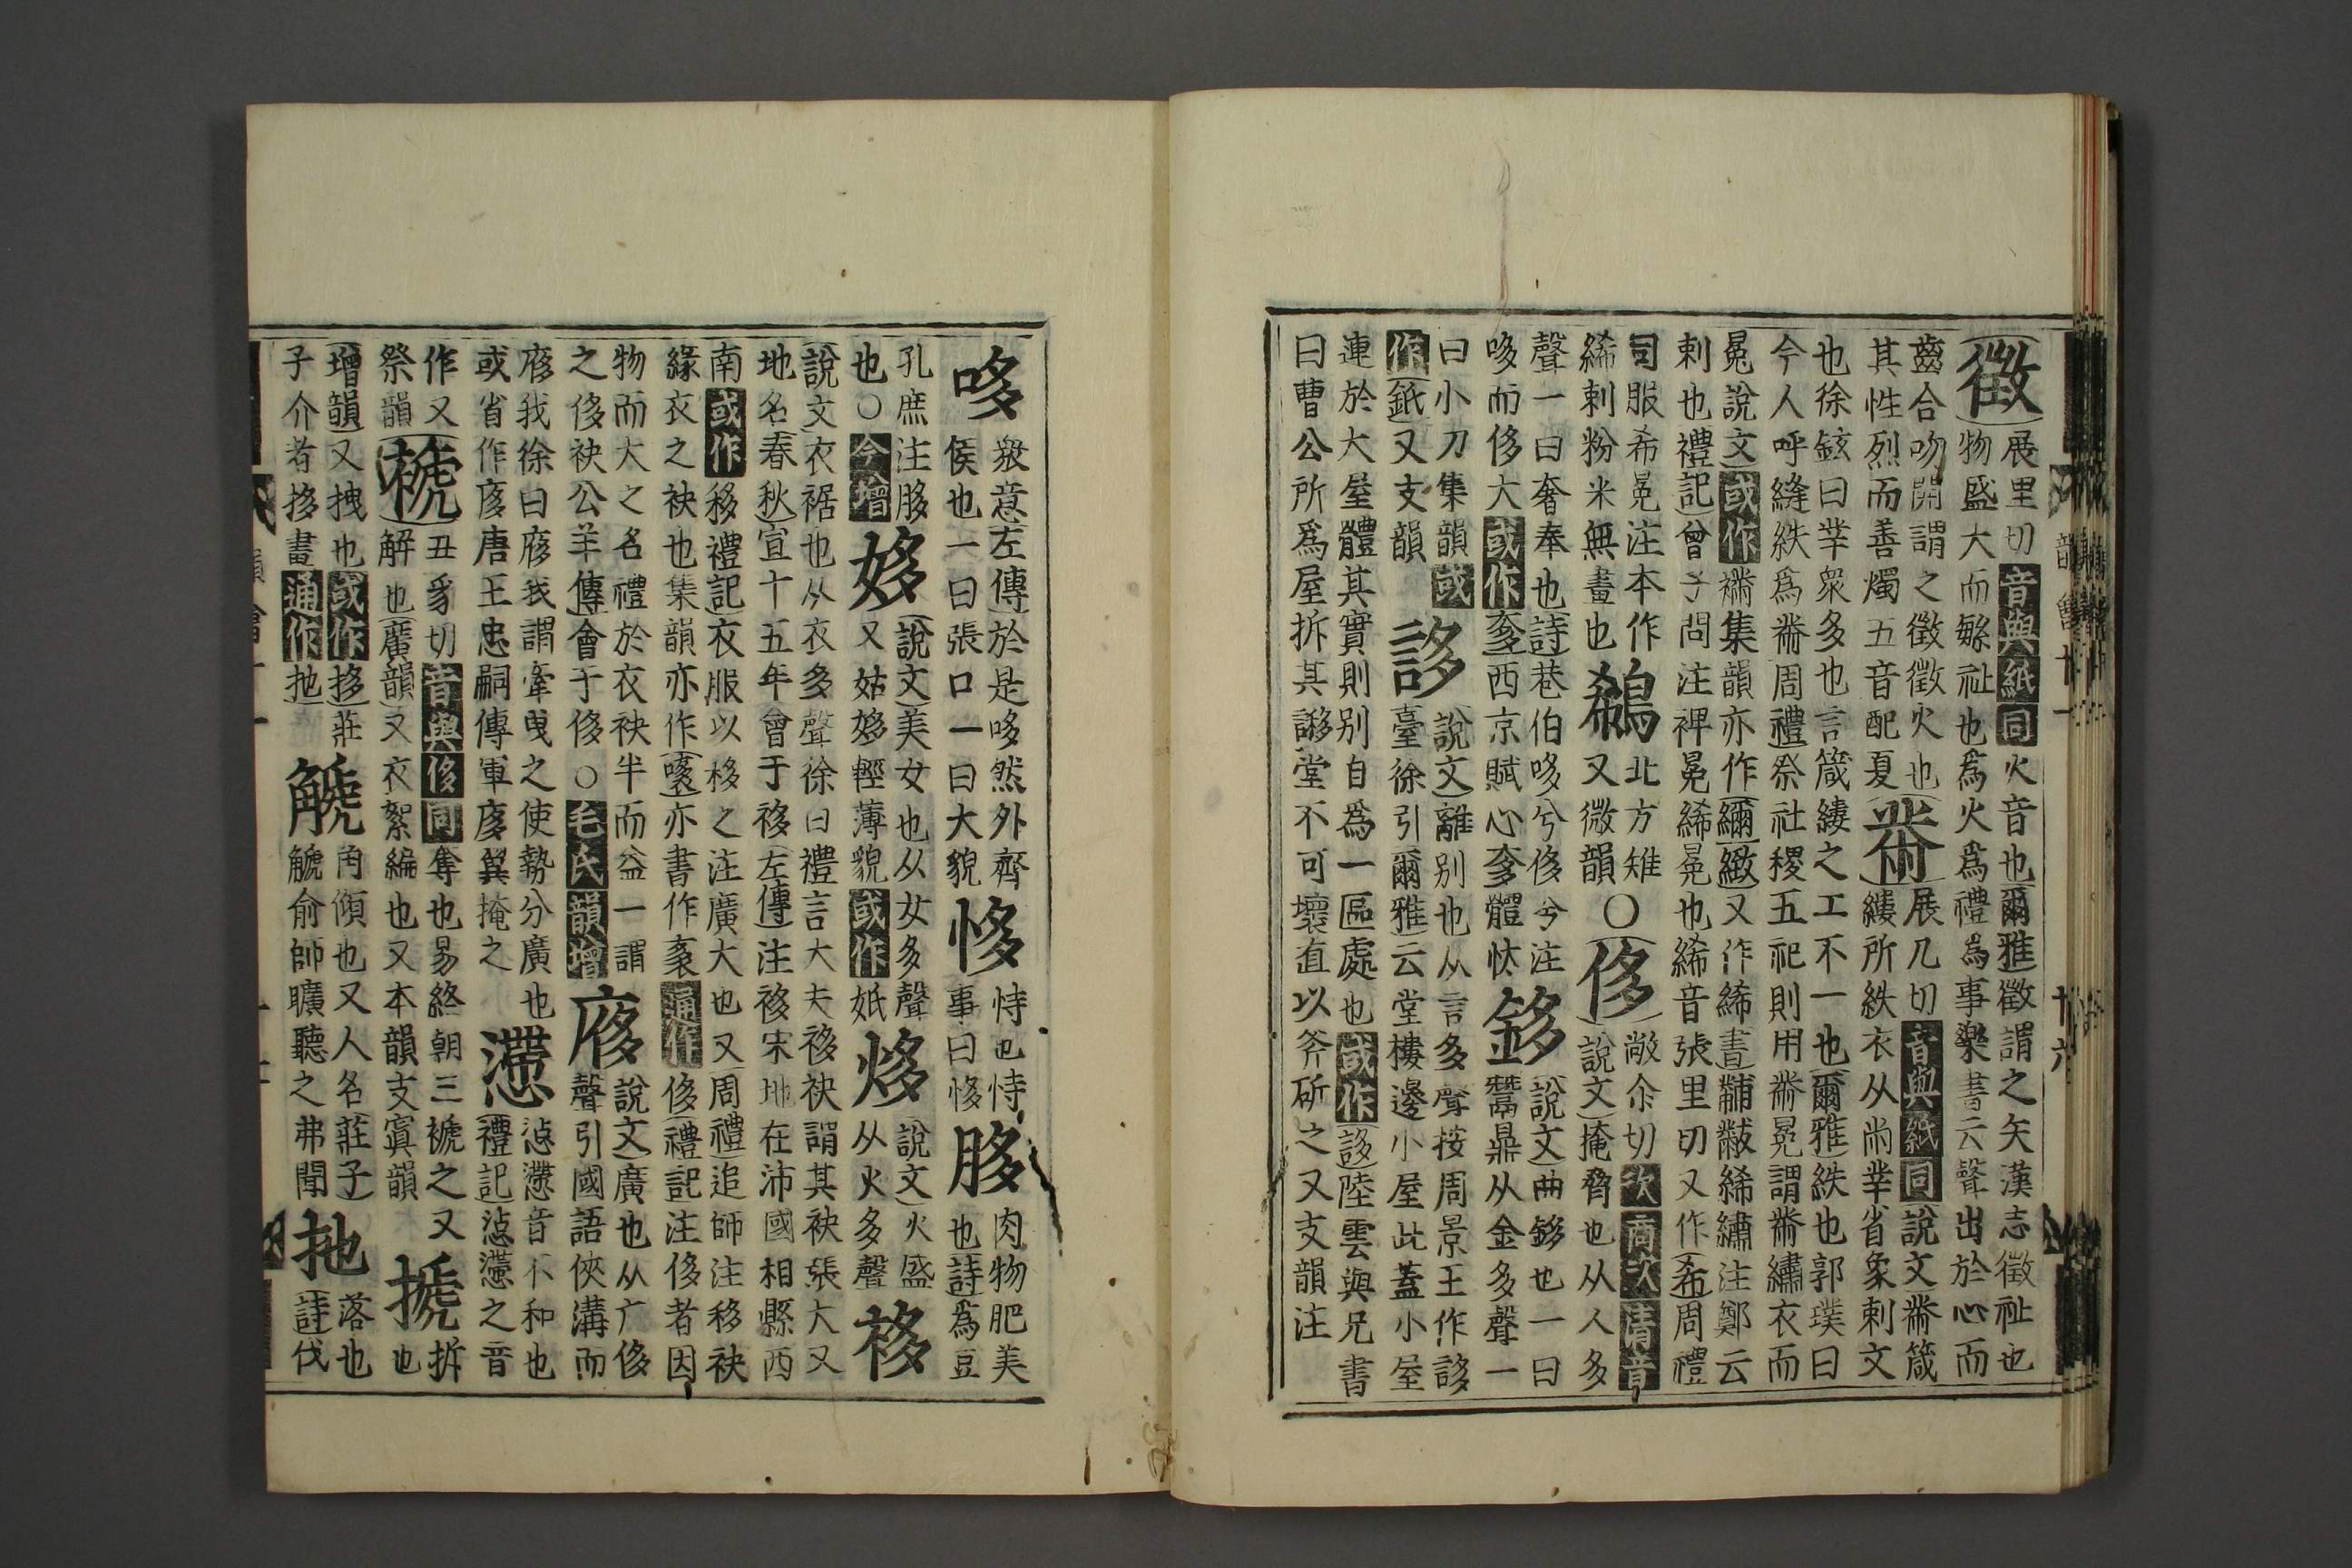 徵展里切音與紙同火音也爾雅徵謂之矢漢志徵祉也
物盛大而緐祉也爲火爲禮爲事樂書云聲出於心而
齒合吻開謂之徵徵火也黹展几切音與紙同說文黹箴
其性烈而善燭五音配夏縷所紩衣从㡀丵省象刺文
也徐鉉曰丵衆多也言箴縷之工不一也爾雅紩也郭璞曰
今人呼縫紩爲黹周禮祭社稷五祀則用黹冕謂黹繡衣而
冕說文或作襧集韻亦作繝緻又作絺書黼黻絺繡注鄭云
刺也禮記曾子問注裨冕絺冕也絺音張里切又作希周禮
司服希冕注本作北方雉〇侈敞尒切次商次清音
絺刺粉米無畫也鵗又微韻說文掩脅也从人多
聲一曰奢奉也詩巷伯哆兮侈兮注鉹說文曲鉹也一曰
哆而侈大或作奓西京賦心奓體忲鬵鼎从金多聲一
曰小刀集韻或誃說文離别也从言多聲按周景王作誃
作䤠又支韻臺徐引爾雅云堂樓邊小屋此蓋小屋
連於大屋體其實則别自爲一區處也或作謻陸雲與兄書
曰曹公所爲屋拆其謻堂不可壞直以斧斫之又支韻注
哆衆意左傳於是哆然外齊恀恃也恃胗肉物肥美
侯也一曰張口一曰大貌事曰恀也詩爲豆
孔庶注胗姼說文美女也从女多聲㶴說文火盛
也〇今增又姑姼輕薄貌或作妧从火多聲袳
說文衣裾也从衣多聲徐曰禮言大夫袳袂謂其袂張大又
地名春秋宣十五年會于袳左傳注袳宋地在沛國相縣西
南或作移禮記衣服以移之注廣大也又周禮追師注移袂
緣衣之袂也集韻亦作㰆亦書作袲通作侈禮記注侈者因
物而大之名禮於衣袂半而益一謂廖說文廣也从广侈
之侈袂公羊傳會于侈〇毛氏韻增聲引國語俠溝而
㢋我徐曰㢋我謂牽曳之使勢分廣也懘惉懘音不和也
或省作㢋唐王忠嗣傳軍㢋翼掩之禮記惉懘之音
作又褫丑豸切音與侈同奪也易終朝三褫之又搋拆
祭韻解也廣韻又衣絮編也又本韻支寘韻也
增韻又拽也或作拸莊觿角傾也又人名莊子扡落也
子介者拸畫通作扡觿俞師曠聽之弗聞詩伐